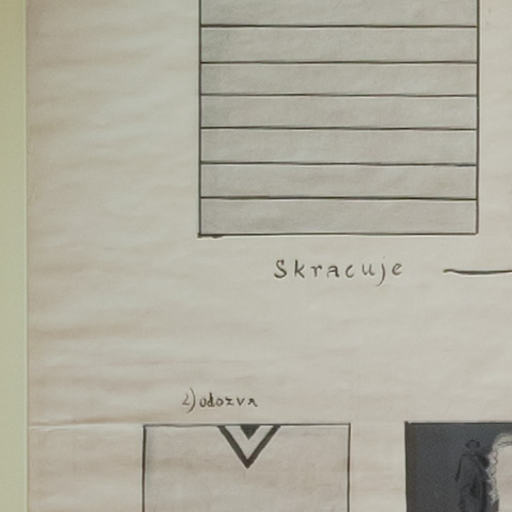 Skracuje
2) odozva